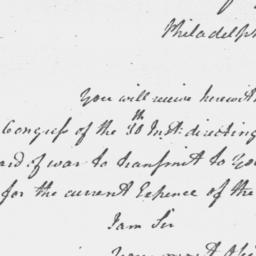 Philadelph
You will receive herewith
Congress of the 10th Inst. directing
ard of war to transmit to You
for the current Expence of the
I am Sir